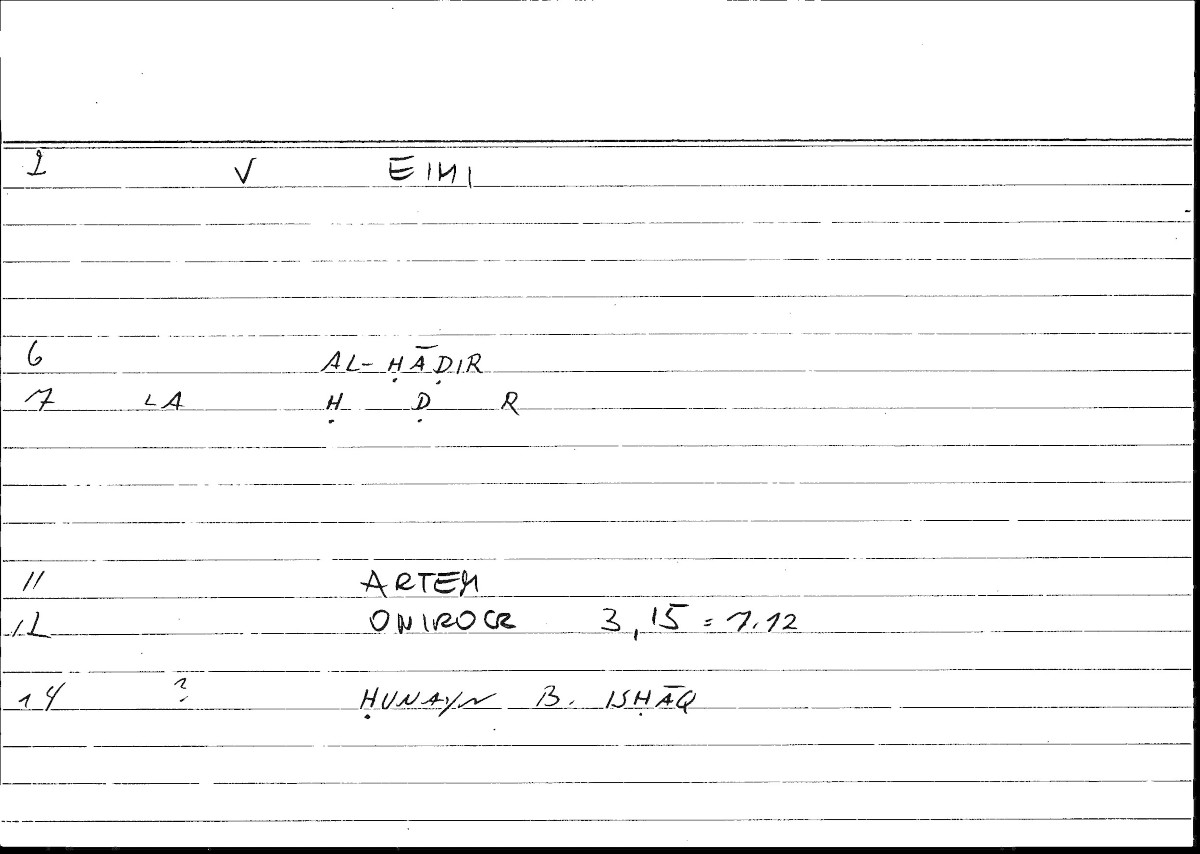 1 V EIMI
6 AL-ḤĀḌIR
7 LA Ḥ Ḍ R
11 ARTEM
12 ONIROCR 3,15 = 1.12
14 ? ḤUNAYN B. ISḤĀQ